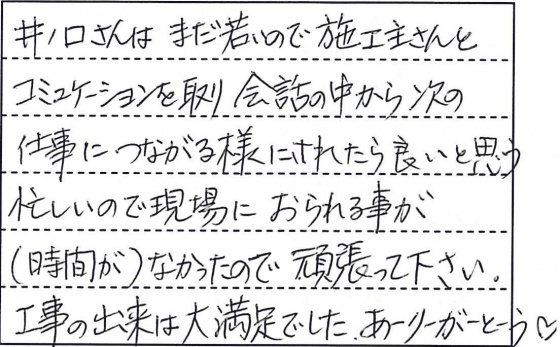 井ノ口さんは まだ若いので 施工主さんと
コミュケーションを取り 会話の中から 次の
仕事に つながる様にされたら良いと思う
忙しいので現場に おられる事が
(時間が)なかったので 頑張って下さい.
工事の出来は大満足でした. あーりーがーとーう♡